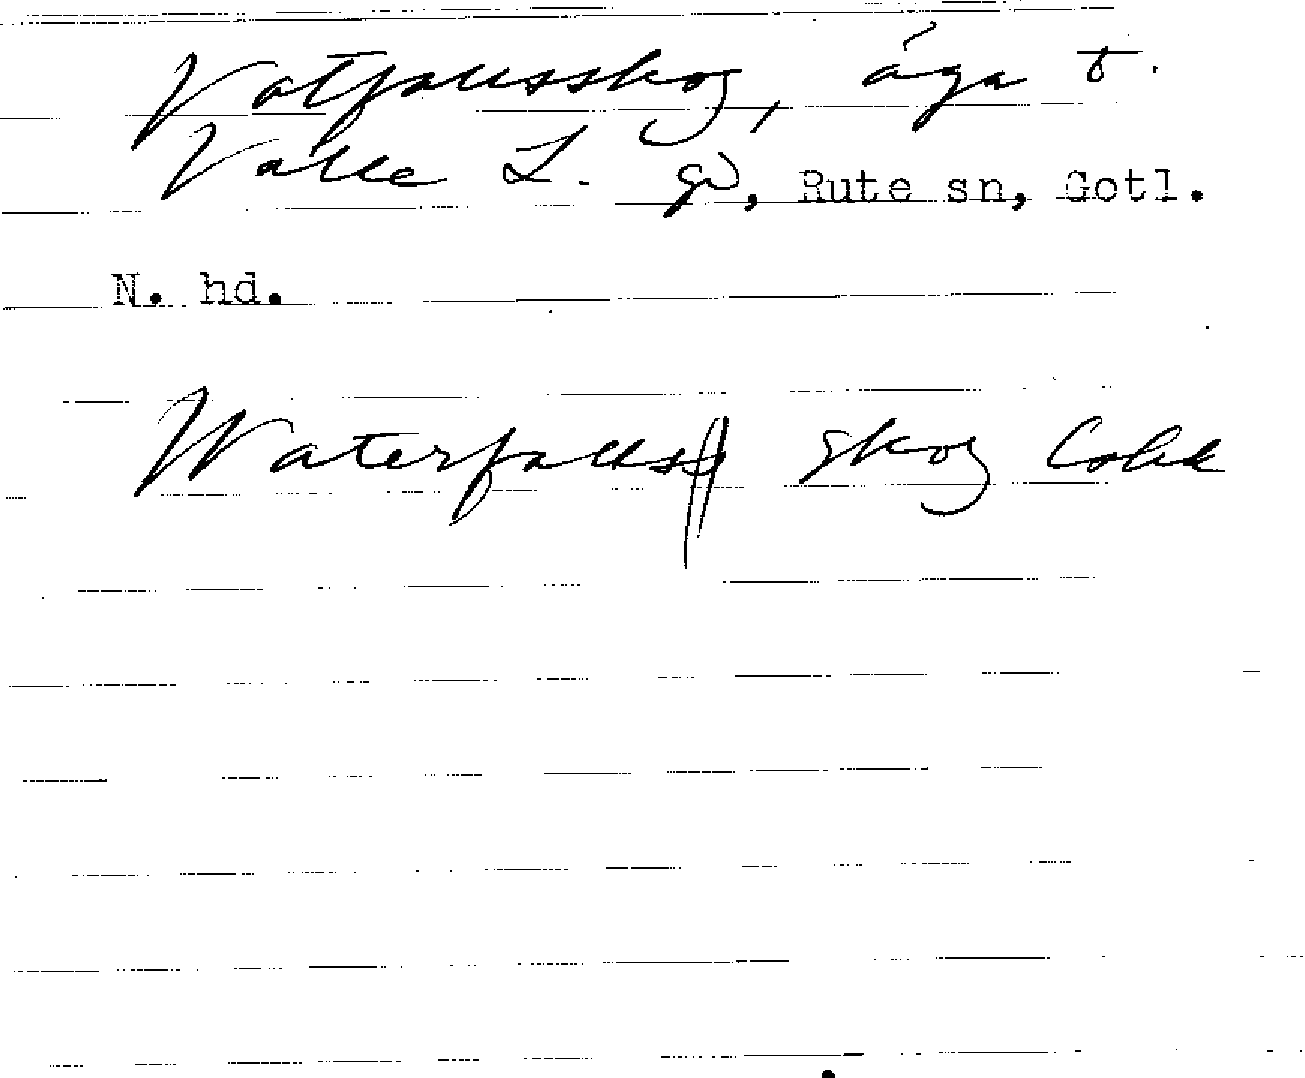 Vatfallsskog, äga t.
Valle L. gd, Rute sn, Gotl.
N. hd.
Waterfalls skog